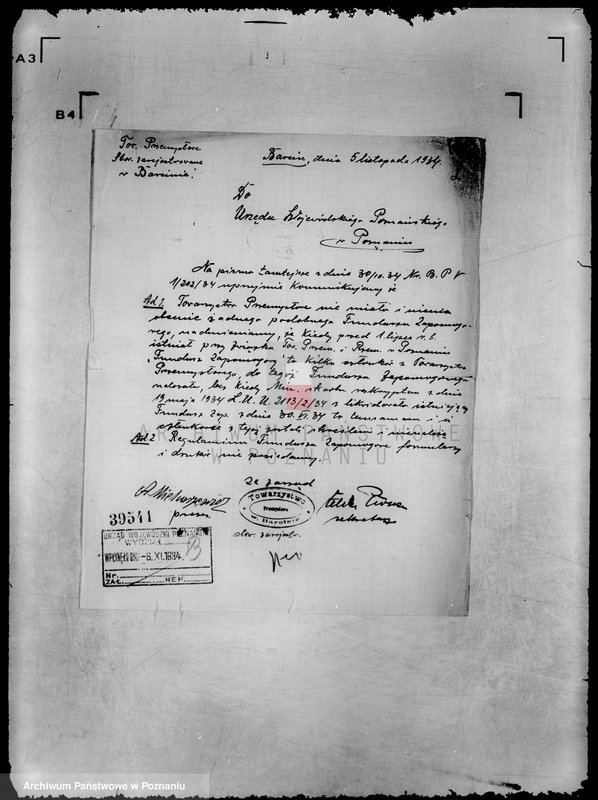 A3
B4
Tow. Przemysłowe
Stow. zarejestrowane
w Barcinie.
Barcin, dnia 5 listopada 1934.
Do
Urzędu Wojewódzkiego Poznańskiego
w Poznaniu
Na pismo tamtejsze z dnia 30/10.34 Nr. B. P. V
1/202/34 uprzejmie komunikujemy że
Ad 1. Towarzystwo Przemysłowe nie miało i niema
obecnie żadnego podobnego Funduszu Zapomogo-
wego, nadmieniamy, że kiedy przed 1. lipca r. b.
istniał przy Związku Tow. Przem. i Rzem. w Poznaniu
"Fundusz Zapomogowy" to kilku członków z Towarzystwa
Przemysłowego do tegoż Funduszu Zapomogowego
należało, lecz kiedy Min. skarbu reskryptem z dnia
19 maja 1934 L. U. U. 2113/2/34 zlikwidowało istniejący
Fundusz Zap. z dnia 30. VI. 34 to tem samem i ci
członkowie z tejż zostali skreśleni
Ad 2 Regulaminu Funduszu Zapomogowego formularzy
i druków nie posiadamy.
ARCHIWUM PAŃSTWOWE
W POZNANIU
Za zarząd
prezes
Towarzystwo
Przemysłowe
w Barcinie
sekretarz
stow. zarejestr.
39541
URZĄD WOJEWÓDZKI POZNAŃSKI
WYDZIAŁ
WPŁYNĘŁO DNIA -6. XI. 1934.
Nr.
ZAŁ. REF.
Archiwum Państwowe w Poznaniu